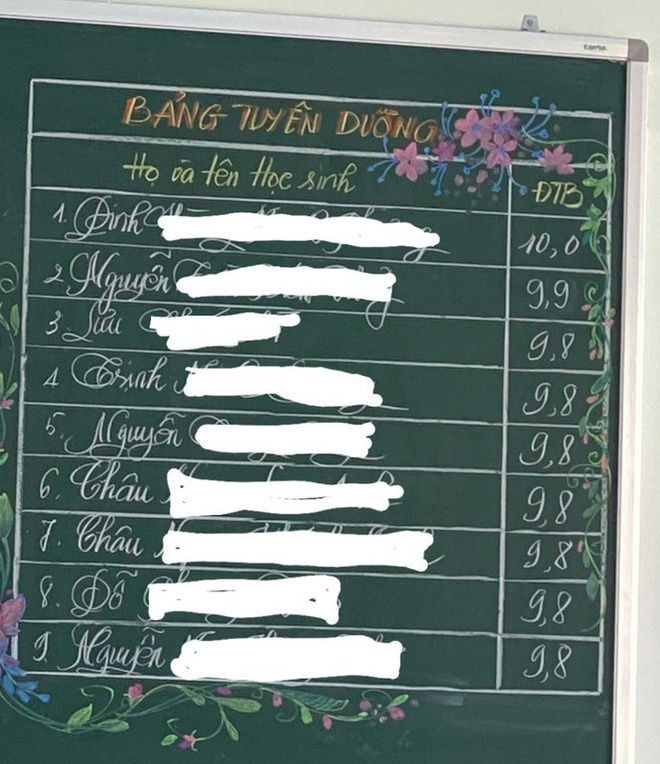 BẢNG TUYÊN DƯƠNG
Họ và tên Học sinh ĐTB
1. Đinh 10,0
2. Nguyễn 9,9
3 Lưu 9,8
4 Trịnh 9,8
5. Nguyễn 9,8
6. Châu 9,8
7. Châu 9,8
8. Đỗ 9,8
9. Nguyễn 9,8